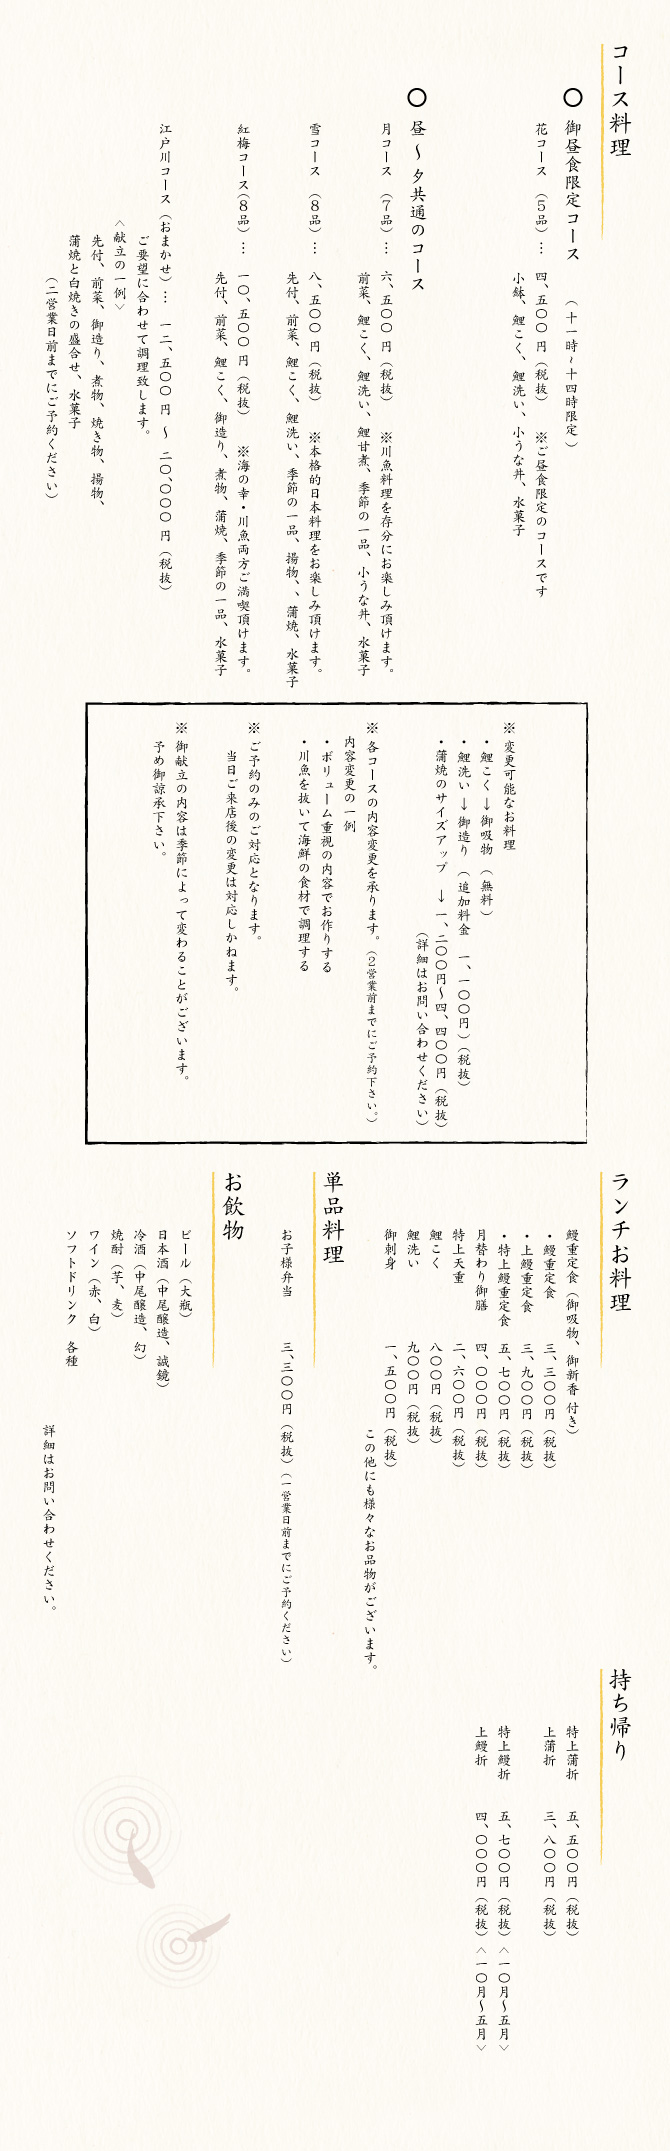 コース料理
○ 御昼食限定コース （十一時～十四時限定）
花コース （５品）… 四、五〇〇 円（税抜） ※ご昼食限定のコースです
小鉢、鯉こく、鯉洗い、小うな丼、水菓子
○ 昼 ～ 夕共通のコース
月コース （７品）… 六、五〇〇 円（税抜） ※川魚料理を存分にお楽しみ頂けます。
前菜、鯉こく、鯉洗い、鯉甘煮、季節の一品、小うな丼、水菓子
雪コース （８品）… 八、五〇〇 円（税抜） ※本格的日本料理をお楽しみ頂けます。
先付、前菜、鯉こく、鯉洗い、季節の一品、揚物、、蒲焼、水菓子
紅梅コース（８品）… 一〇、五〇〇 円（税抜） ※海の幸・川魚両方ご満喫頂けます。
先付、前菜、鯉こく、御造り、煮物、蒲焼、季節の一品、水菓子
江戸川コース（おまかせ）… 一二、五〇〇 円 ～ 二〇、〇〇〇 円（税抜）
ご要望に合わせて調理致します。
＜献立の一例＞
先付、前菜、御造り、煮物、焼き物、揚物、
蒲焼と白焼きの盛合せ、水菓子
（二営業日前までにご予約ください）
※ 変更可能なお料理
・鯉こく→御吸物 （無料）
・鯉洗い→御造り （追加料金 一、一〇〇円）（税抜）
・蒲焼のサイズアップ →一、二〇〇円～四、四〇〇円（税抜）
（詳細はお問い合わせください）
※ 各コースの内容変更を承ります。（２営業前までにご予約下さい。）
内容変更の一例
・ボリューム重視の内容でお作りする
・川魚を抜いて海鮮の食材で調理する
※ ご予約のみのご対応となります。
当日ご来店後の変更は対応しかねます。
※ 御献立の内容は季節によって変わることがございます。
予め御諒承下さい。
ランチお料理
鰻重定食（御吸物、御新香 付き）
・鰻重定食 三、三〇〇円（税抜）
・上鰻重定食 三、九〇〇円（税抜）
・特上鰻重定食 五、七〇〇円（税抜）
月替わり御膳 四、〇〇〇円（税抜）
特上天重 二、六〇〇円（税抜）
鯉こく 八〇〇円（税抜）
鯉洗い 九〇〇円（税抜）
御刺身 一、五〇〇円（税抜）
この他にも様々なお品物がございます。
単品料理
お子様弁当 三、三〇〇円（税抜）（一営業日前までにご予約ください）
お飲物
ビール（大瓶）
日本酒（中尾醸造、誠鏡）
冷酒（中尾醸造、幻）
焼酎（芋、麦）
ワイン（赤、白）
ソフトドリンク 各種
詳細はお問い合わせください。
持ち帰り
特上蒲折 五、五〇〇円（税抜）
上蒲折 三、八〇〇円（税抜）
特上鰻折 五、七〇〇円（税抜）＜一〇月～五月＞
上鰻折 四、〇〇〇円（税抜）＜一〇月～五月＞